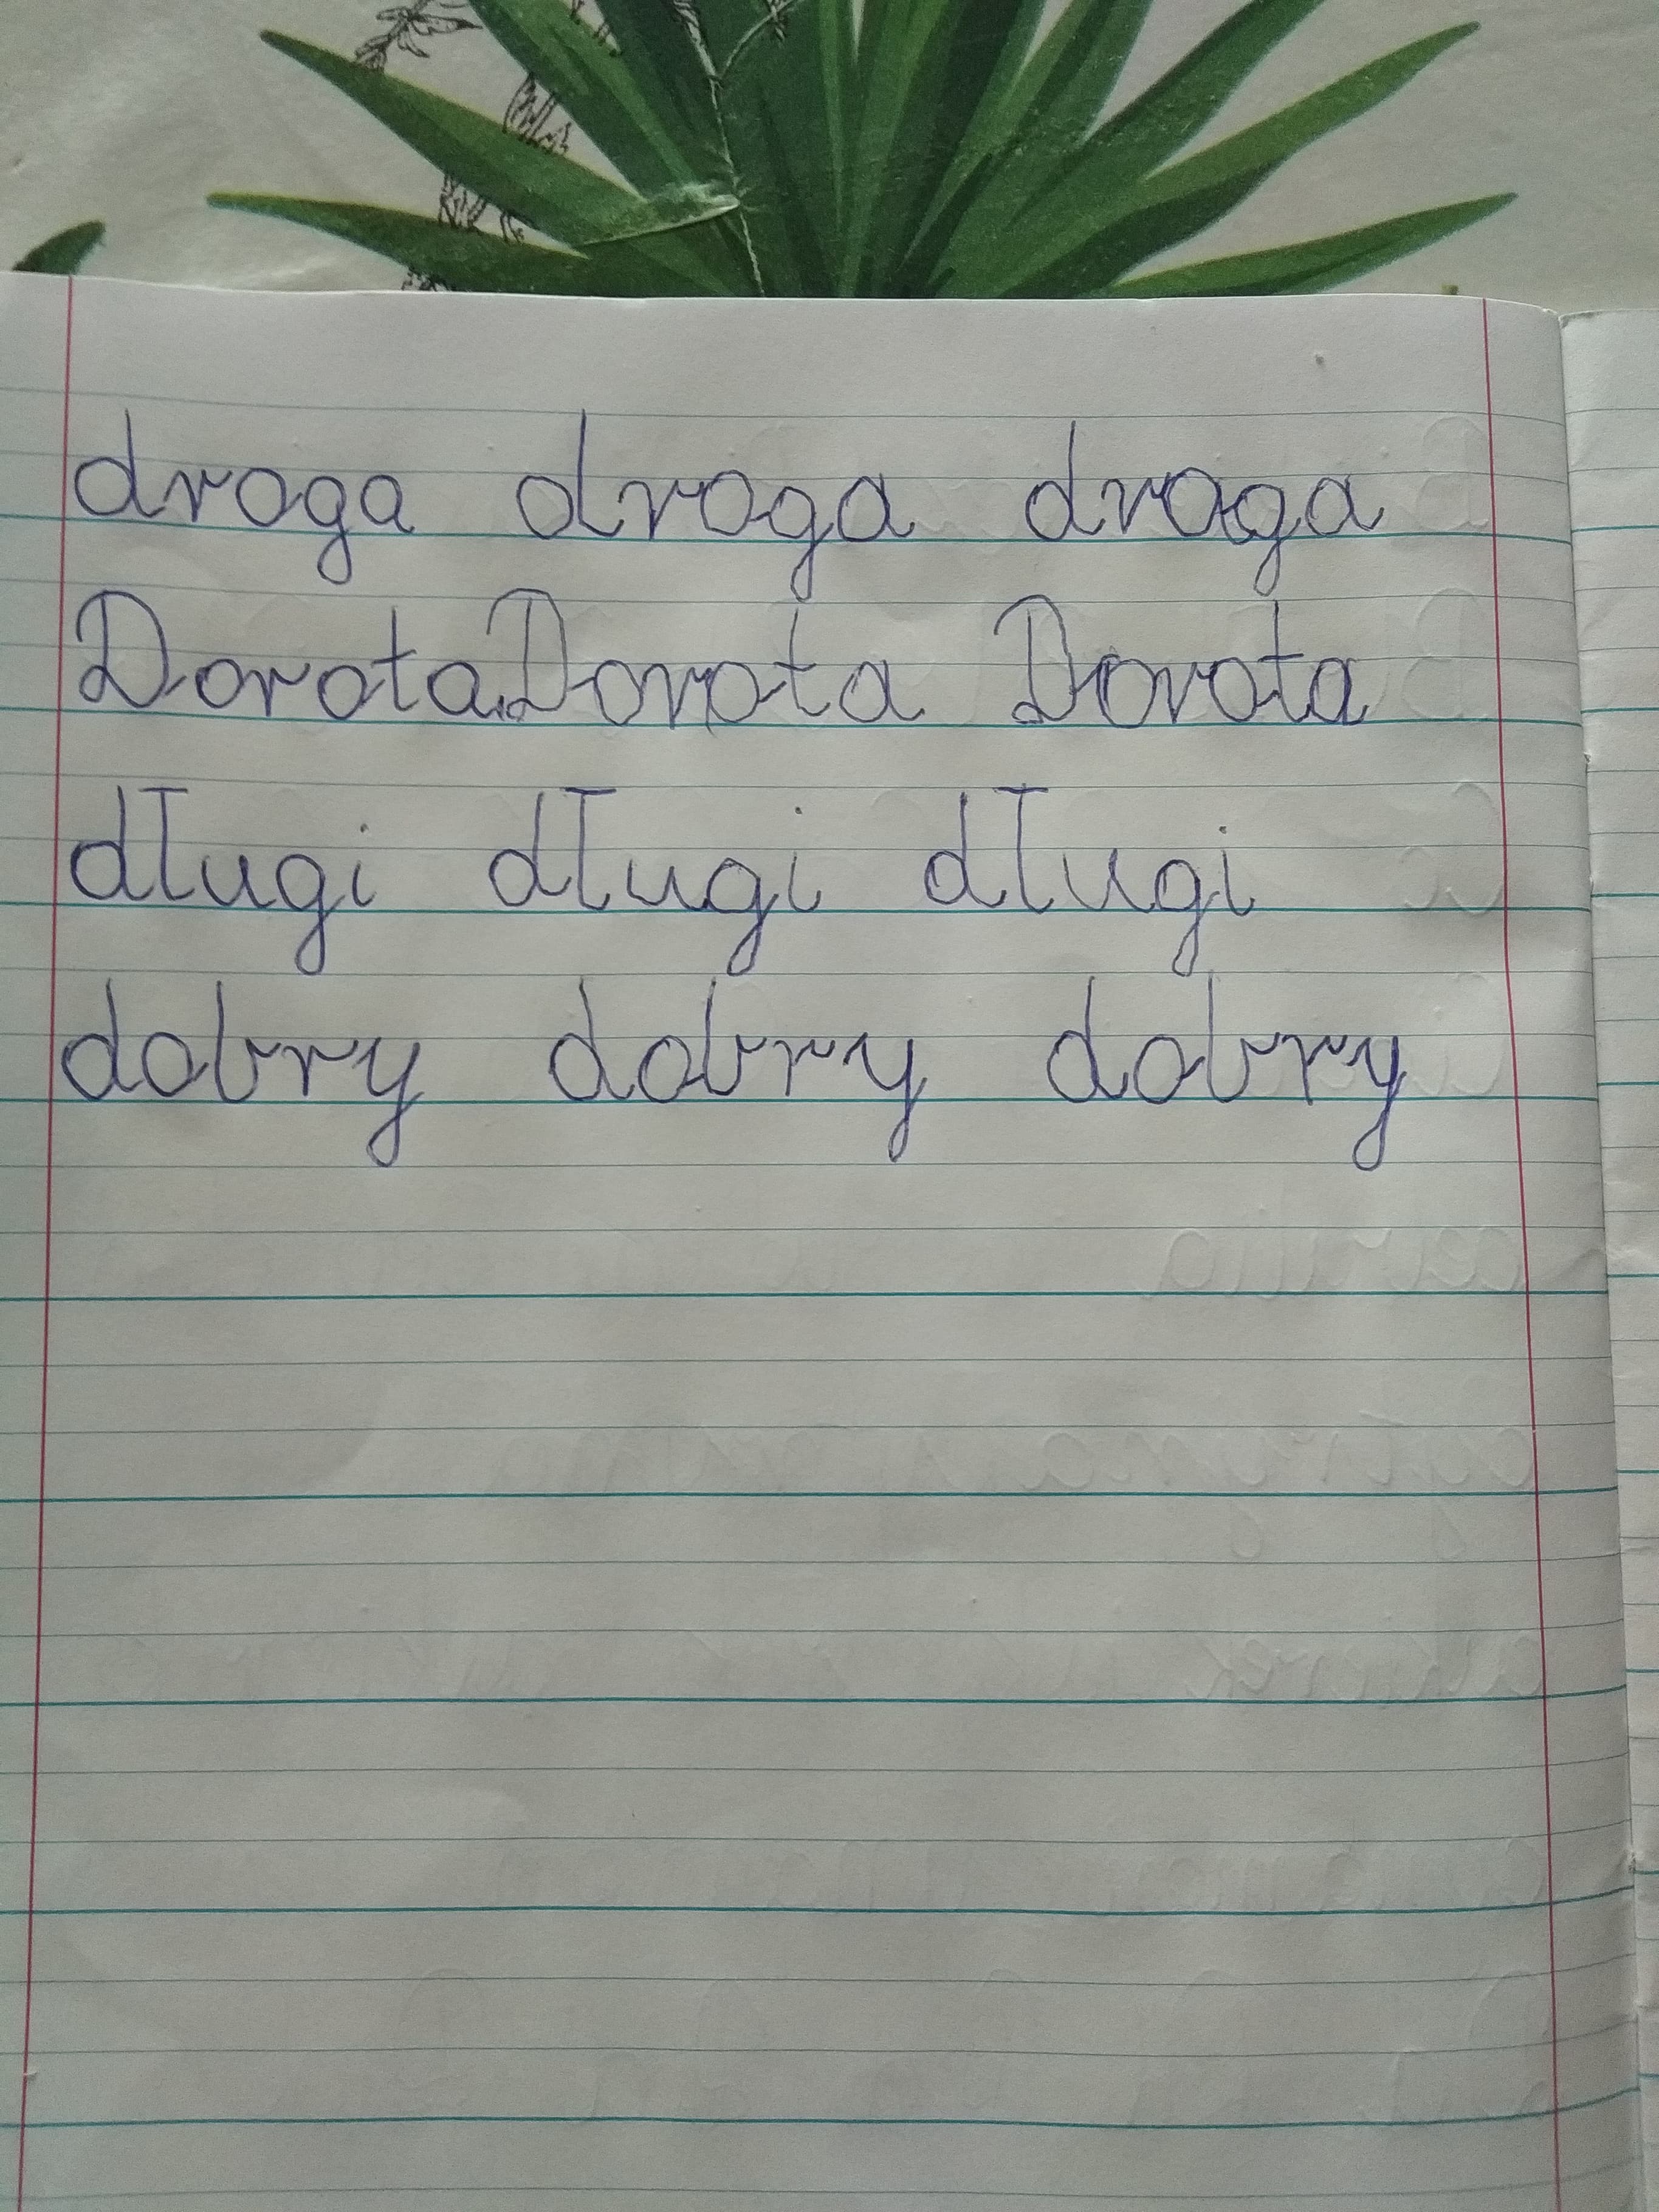 droga droga droga
Dorota Dorota Dorota
długi długi długi
dobry dobry dobry